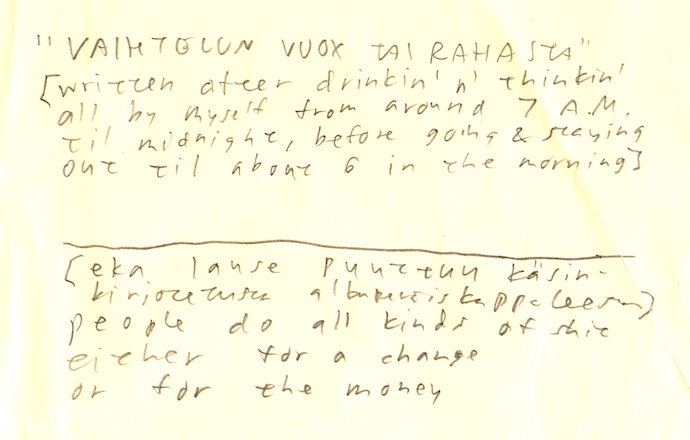 "VAIHTELUN VUOX TAI RAHASTA"
[written after drinkin' n' thinkin'
all by myself from around 7 A.M.
til midnight, before going & staying
out til about 6 in the morning]
[eka lause puuttuu käsin-
kirjoitetusta
people do all kinds of shit
either for a change
or for the money